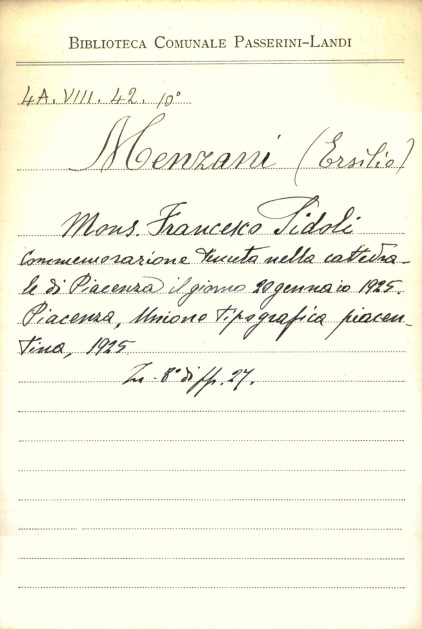 BIBLIOTECA COMUNALE PASSERINI-LANDI
4A. VIII. 42. 10°
Menzani (Ersilio)
Mons. Francesco Sidoli
Commemorazione tenuta nella cattedra-
le di Piacenza il giorno 20 gennaio 1925.
Piacenza, Unione tipografica piacen-
tina, 1925
In-8° di pp. 27.